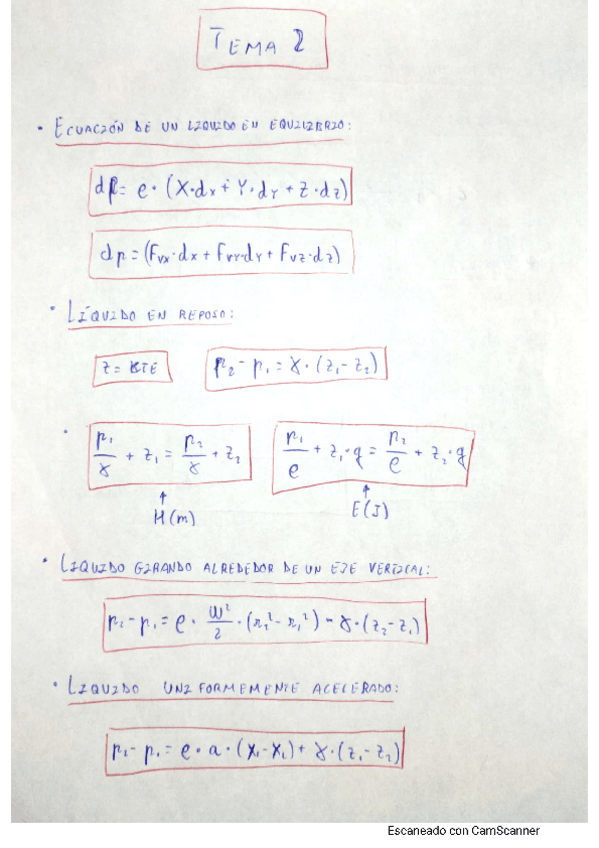 TEMA 2
• ECUACIÓN DE UN LIQUIDO EN EQUILIBRIO:
dp = ρ · (X·dx + Y·dy + Z·dz)
dp = (Fvx·dx + Fvy·dy + Fvz·dz)
• LÍQUIDO EN REPOSO:
z = KTE p₂ - p₁ = γ · (z₁ - z₂)
• p₁/γ + z₁ = p₂/γ + z₂ p₁/ρ + z₁·g = p₂/ρ + z₂·g
↑ ↑
H(m) E(J)
• LIQUIDO GIRANDO ALREDEDOR DE UN EJE VERTICAL:
p₂ - p₁ = ρ · ω²/2 · (r₂² - r₁²) - γ · (z₂ - z₁)
• LIQUIDO UNIFORMEMENTE ACELERADO:
p₂ - p₁ = ρ · a · (x₁ - x₂) + γ · (z₁ - z₂)
Escaneado con CamScanner